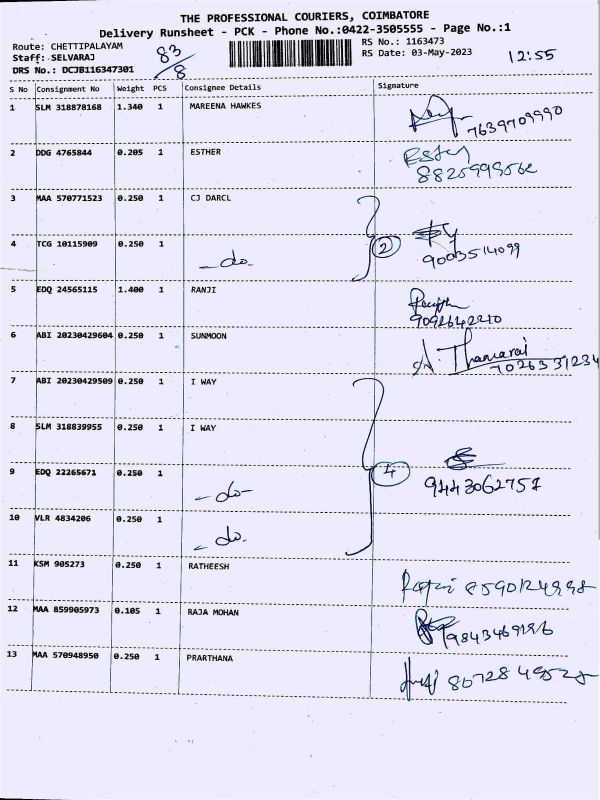 THE PROFESSIONAL COURIERS, COIMBATORE
Delivery Runsheet - PCK - Phone No.:0422-3505555 - Page No.:1
Route: CHETTIPALAYAM
Staff: SELVARAJ
DRS No.: DCJB116347301
83/8
RS No.: 1163473
RS Date: 03-May-2023
12:55
S No Consignment No Weight PCS Consignee Details Signature
1 SLM 318878168 1.340 1 MAREENA HAWKES
7639709990
2 DDG 4765844 0.205 1 ESTHER
Esther
3 MAA 570771523 0.250 1 CJ DARCL
4 TCG 10115909 0.250 1 - do - 2
9003514099
5 EDQ 24565115 1.400 1 RANJI
9092642210
6 ABI 20230429604 0.250 1 SUNMOON
Thamarai
7026331234
7 ABI 20230429509 0.250 1 I WAY
8 SLM 318839955 0.250 1 I WAY
9 EDQ 22265671 0.250 1 - do - 4
9443062757
10 VLR 4834206 0.250 1 - do -
11 KSM 905273 0.250 1 RATHEESH
8590124998
12 MAA 859905973 0.105 1 RAJA MOHAN
9843469196
13 MAA 570948950 0.250 1 PRARTHANA